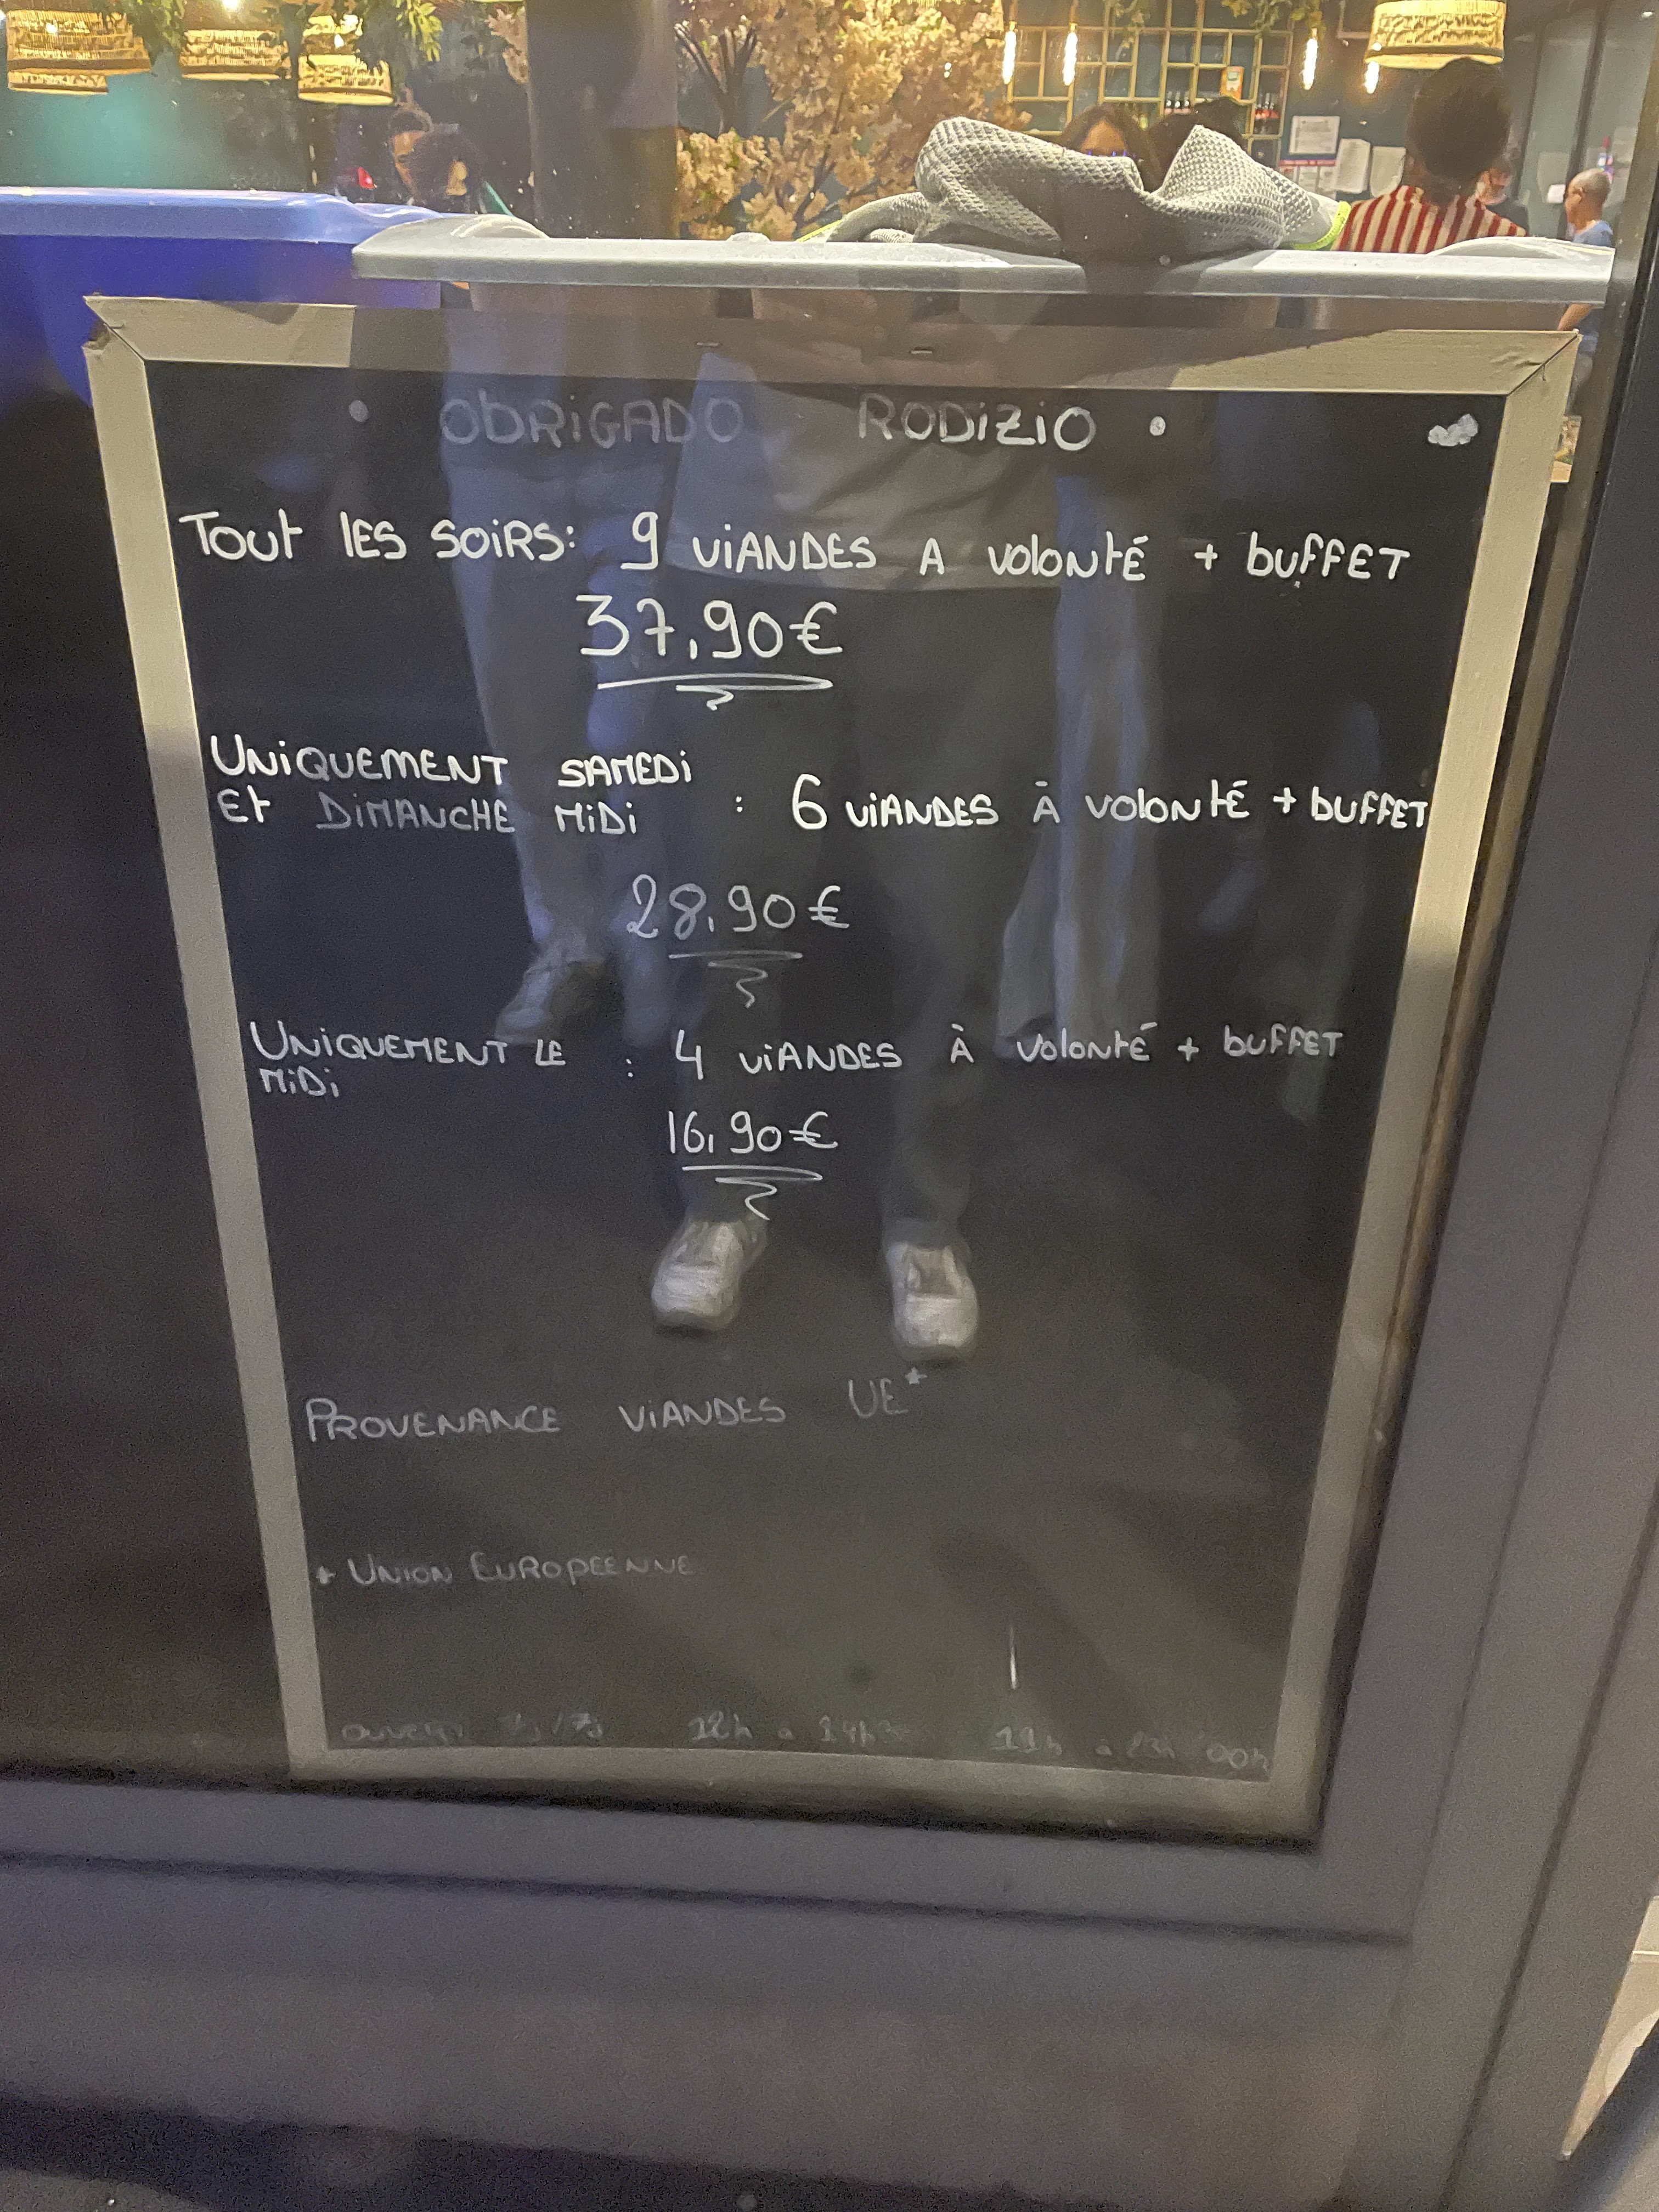 • OBRIGADO RODIZIO •
TOUT LES SOIRS: 9 VIANDES A VOLONTÉ + BUFFET
37,90€
UNIQUEMENT SAMEDI
ET DIMANCHE MIDI : 6 VIANDES À VOLONTÉ + BUFFET
28,90€
UNIQUEMENT LE : 4 VIANDES À VOLONTÉ + BUFFET
MIDI
16,90€
PROVENANCE VIANDES UE*
* UNION EUROPÉENNE
OUVERT 7j/7j 12h à 19h à 23h